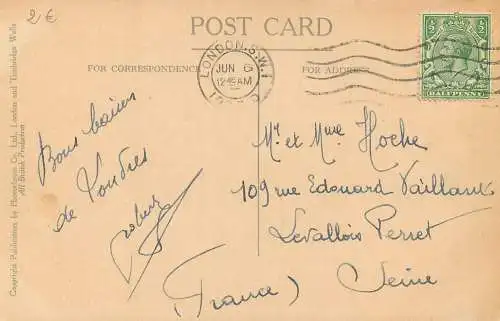 2 €
POST CARD
FOR CORRESPONDENCE
FOR ADDRESS
LONDON. S.W.1
JUN 6
12 AM
½ ½
HALFPENNY
Copyright Publication by Photochrom Co. Ltd., London and Tunbridge Wells
All British Production
Bons baisers
de Londres
Robert
Mr et Mme Hoche
109 rue Edouard Vaillant
Levallois Perret
Seine
(France)